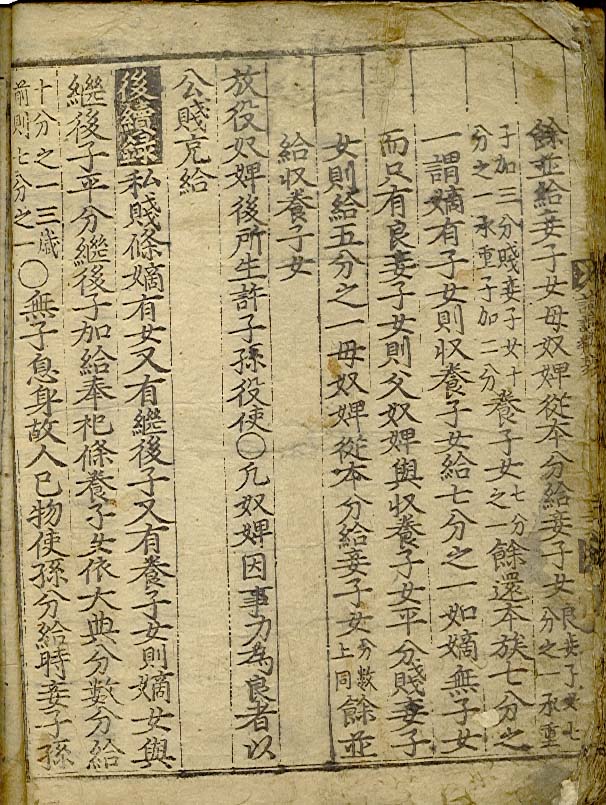 餘並給妾子女母奴婢從本分給妾子女良妾子女七
分之一承重
子加三分賤妾子女十
分之一承重子加二分養子女七分
之一餘還本族七分之
一謂嫡有子女則収養子女給七分之一如嫡無子女
而只有良妾子女則父奴婢與収養子女平分賤妾子
女則給五分之一母奴婢從本分給妾子女分數
上同餘並
給収養子女
放役奴婢後所生許子孫役使〇凡奴婢因事力為良者以
公賤充給
後續錄私賤條嫡有女又有繼後子又有養子女則嫡女與
繼後子平分繼後子加給奉祀條養子女依大典分數分給
十分之一三歲
前則七分之一〇無子息身故人已物使孫分給時妾子孫